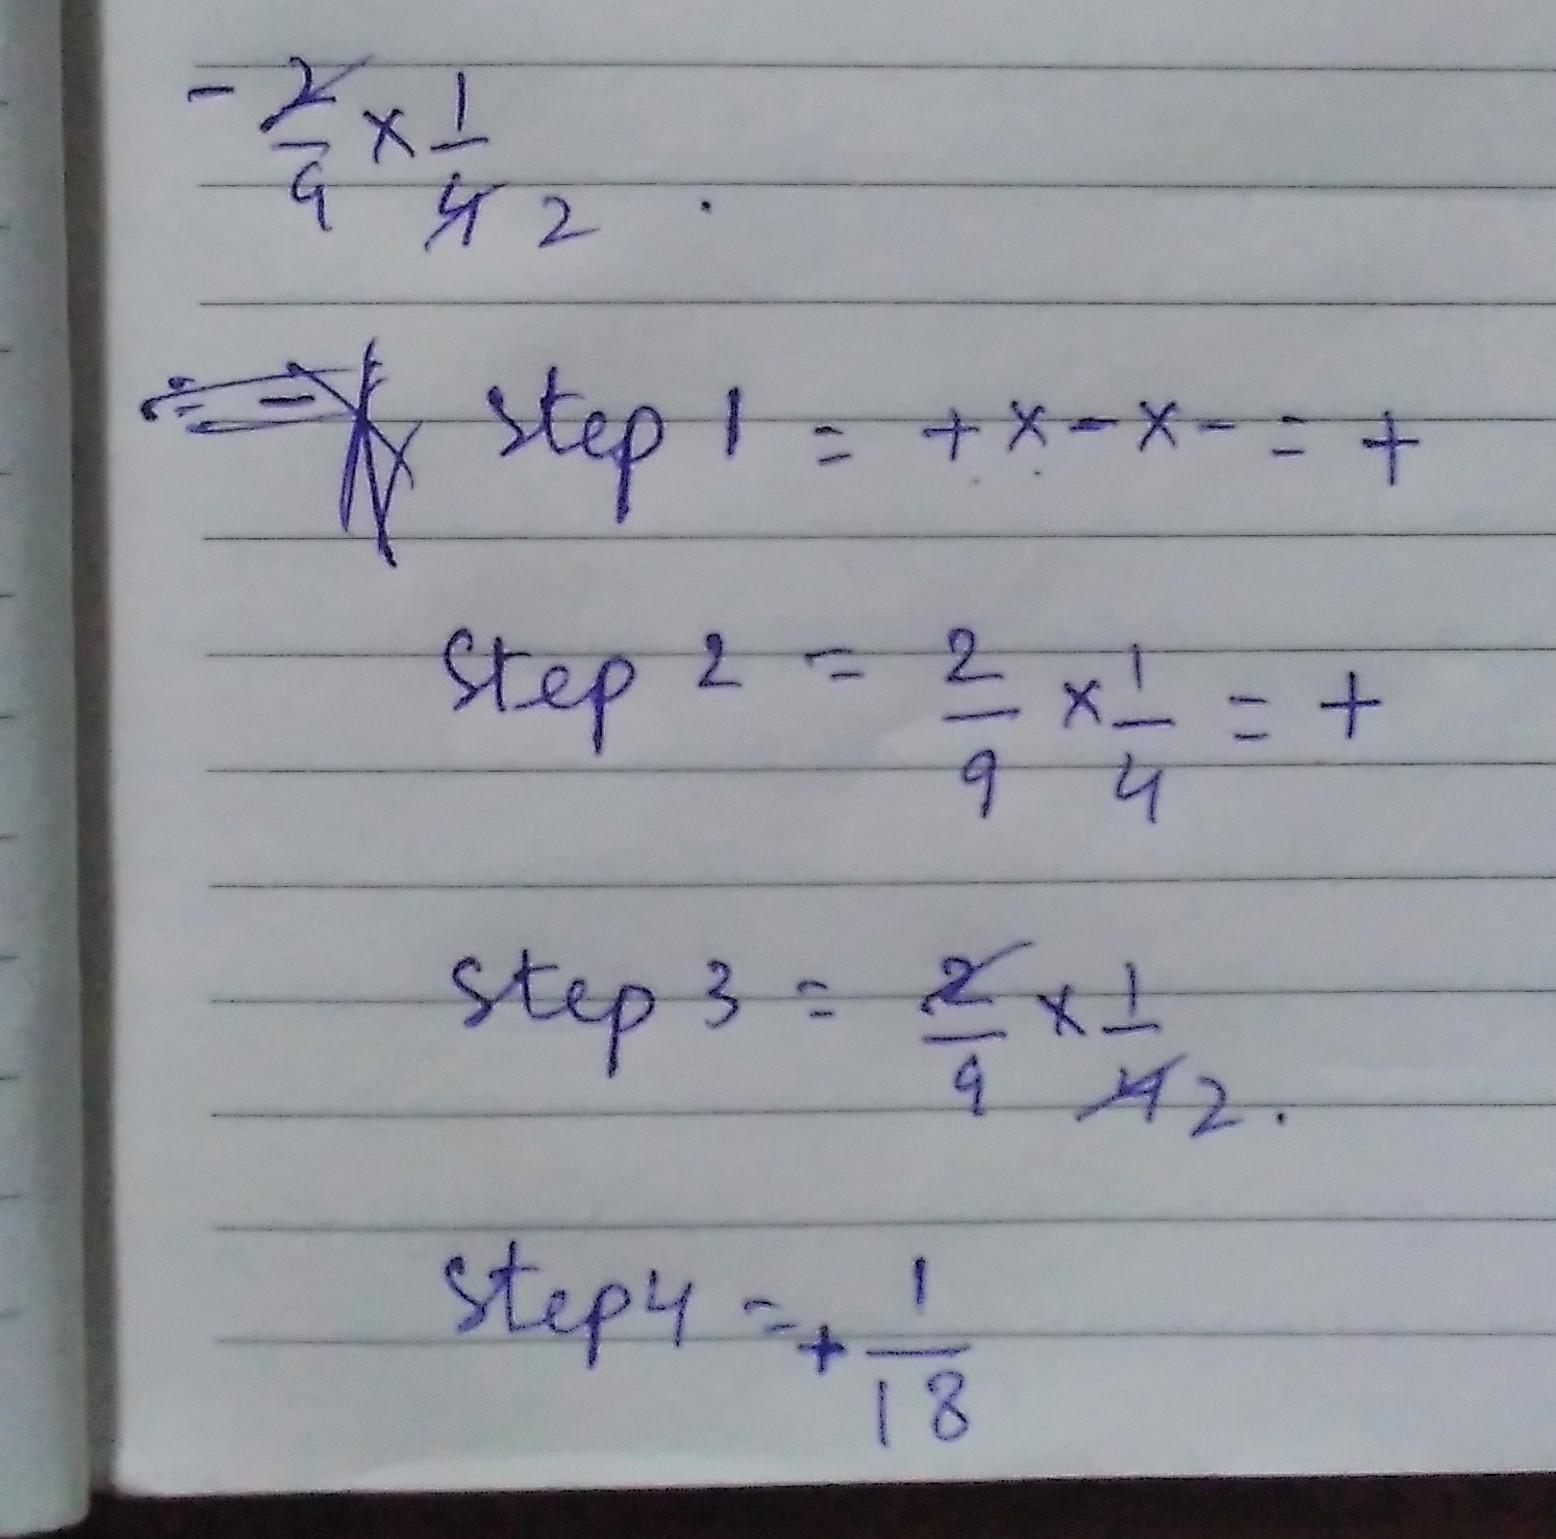 - 2/9 × 1/4 2 .
Step 1 = + × - × - = +
Step 2 = 2/9 × 1/4 = +
Step 3 = 2/9 × 1/4 2.
Step 4 = + 1/18